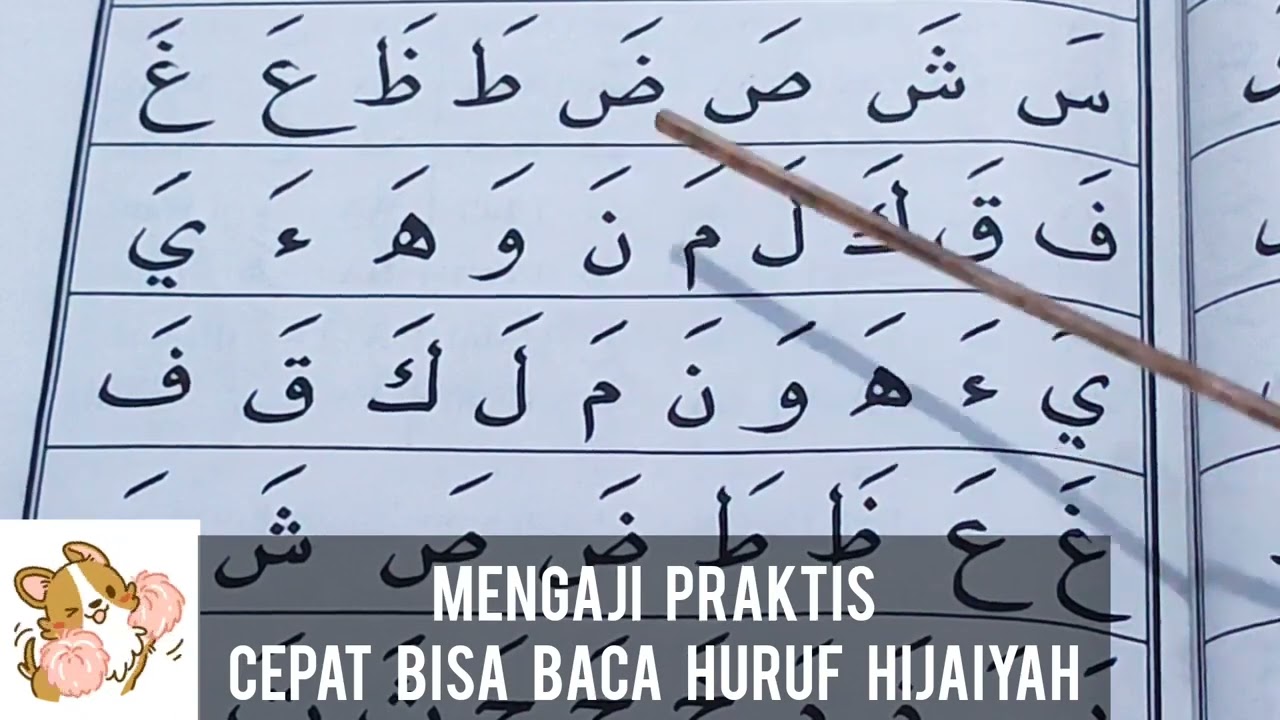 سَ شَ صَ ضَ طَ ظَ عَ غَ
فَ قَ كَ لَ مَ نَ وَ هَ ءَ يَ
يَ ءَ هَ وَ نَ مَ لَ كَ قَ فَ
غَ عَ ظَ طَ ضَ صَ شَ
MENGAJI PRAKTIS
CEPAT BISA BACA HURUF HIJAIYAH